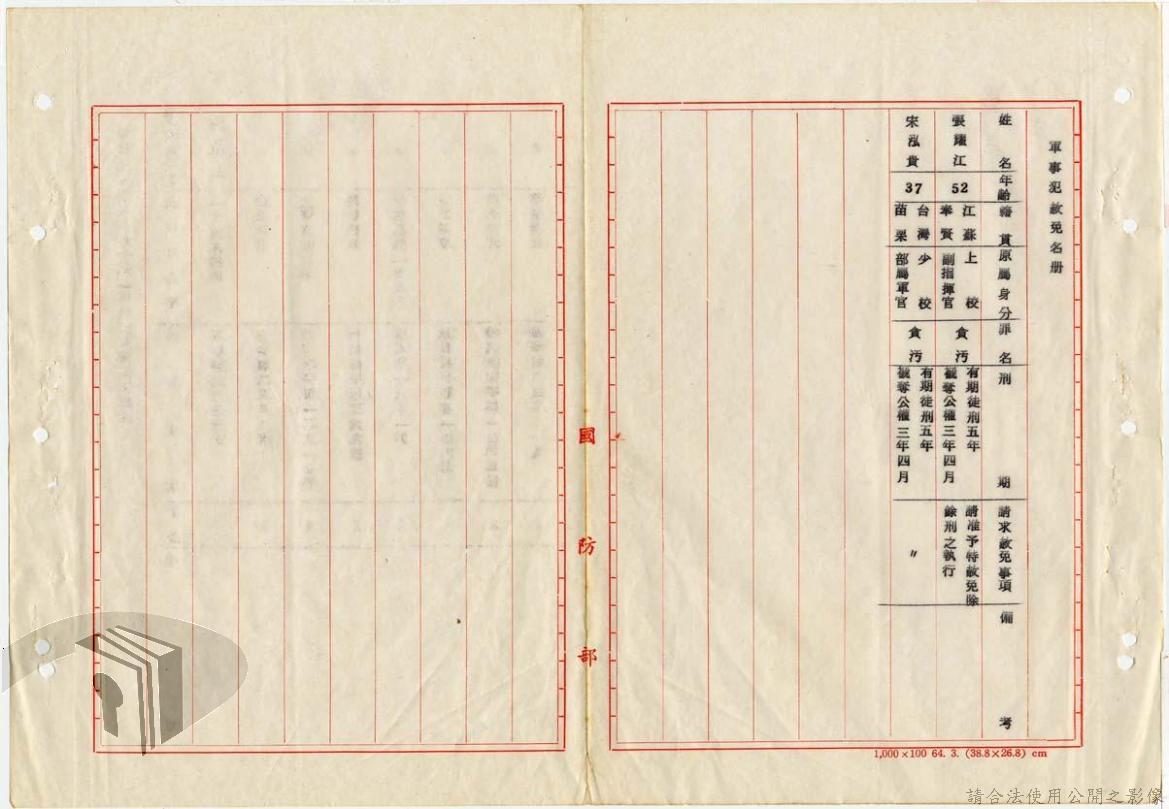 軍事犯赦免名册
姓名 年齡 籍貫 原屬身分 罪名 刑期 請求赦免事項 備考
張耀江 52 江蘇奉賢 上校副指揮官 貪污 有期徒刑五年褫奪公權三年四月 請准予特赦免除餘刑之執行
宋泓貴 37 台灣苗栗 少校部屬軍官 貪污 有期徒刑五年褫奪公權三年四月 〃
國防部
1,000×100 64. 3. (38.8×26.8) cm
請合法使用公開之影像